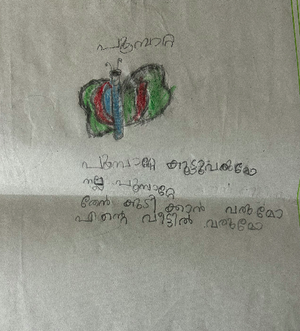 പൂമ്പാറ്റ
പൂമ്പാറ്റേ കൂട്ടുവരുമോ
നല്ല പൂമ്പാറ്റേ
തേൻ കുടിക്കാൻ വരുമോ
എന്റെ വീട്ടിൽ വരുമോ